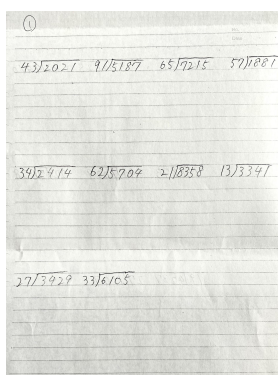 ①
43)2021 91)5187 65)7215 57)1881
34)2414 62)5704 21)8358 13)3341
27)3429 33)6105